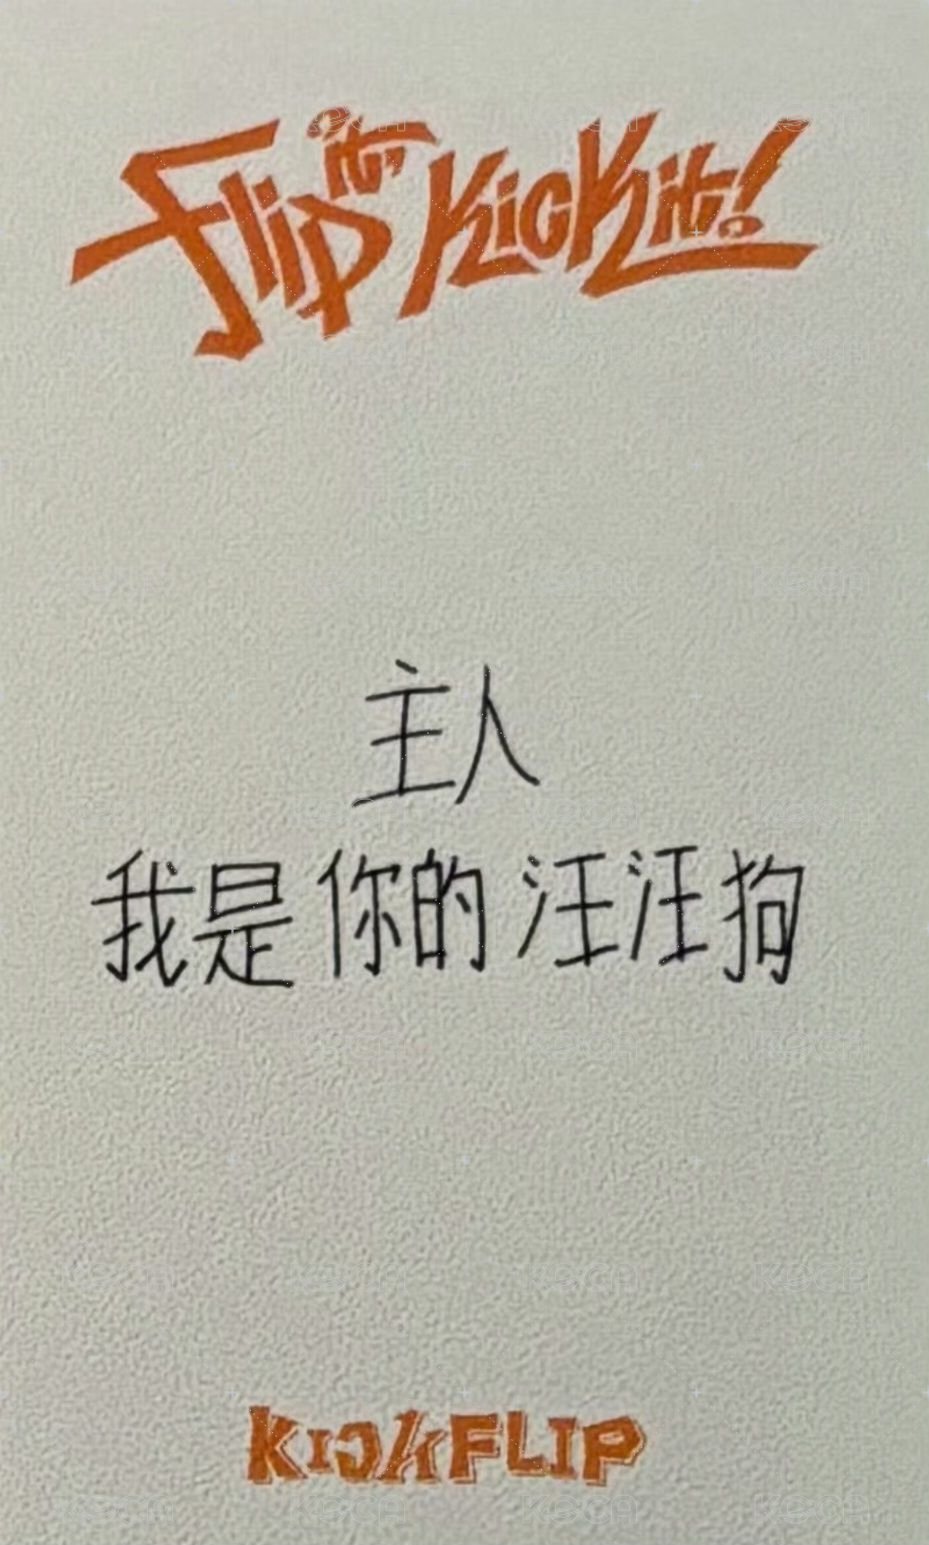 Flip it, Kick it!
主人
我是你的汪汪狗
KICKFLIP